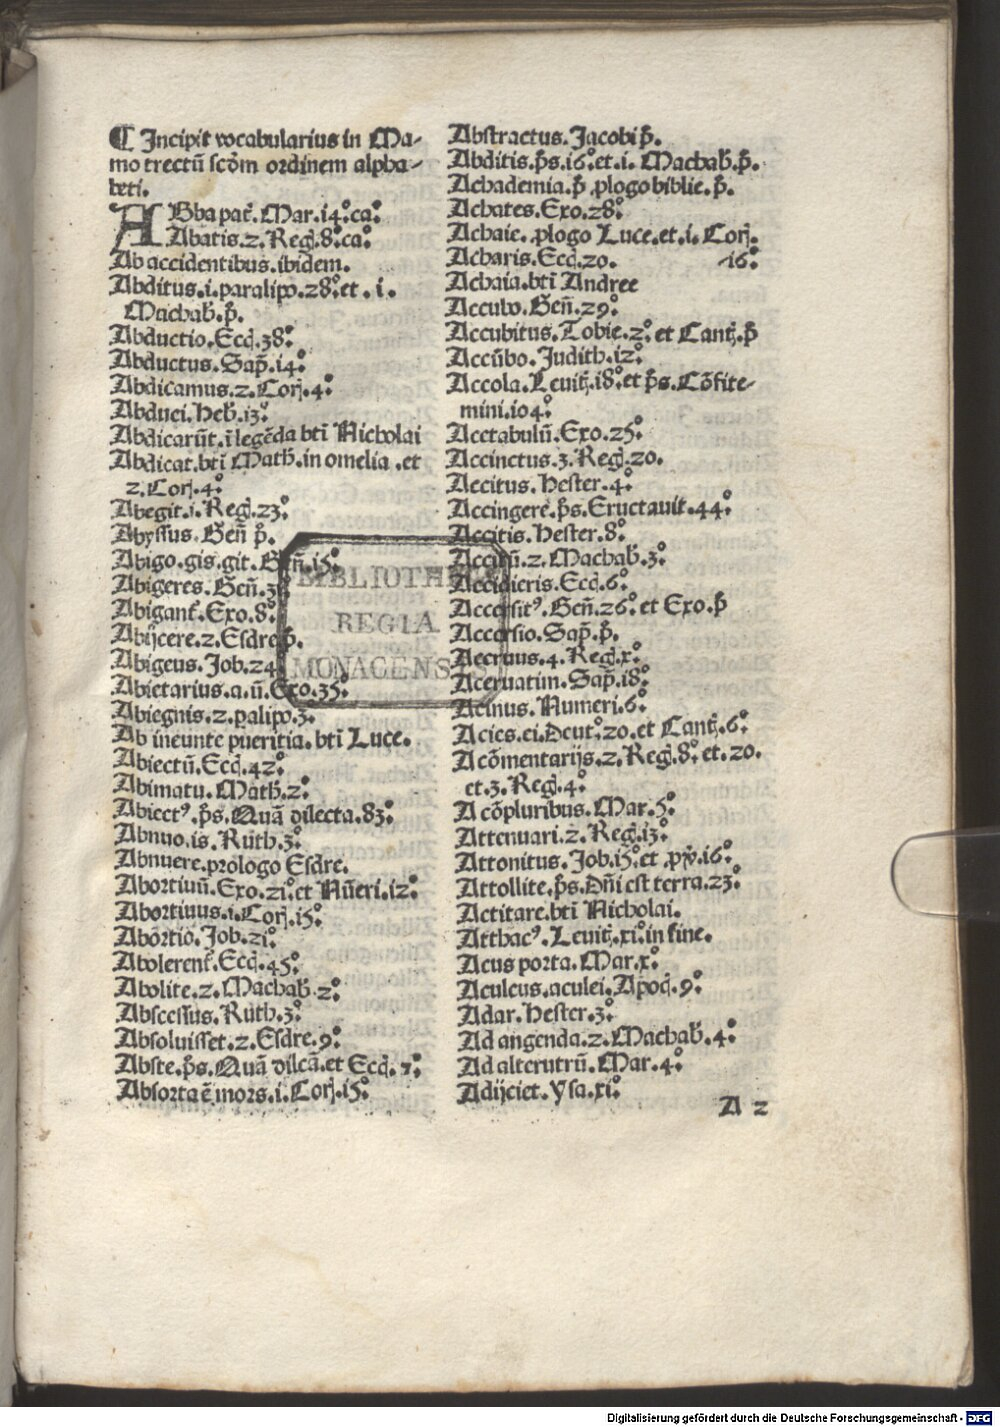 ¶ Incipit vocabularius in Ma-
motrectū scḋm ordinem alpha-
beti.
ABba pat̄. Mar. i4.° ca.°
Abatis. 2. Reg̃. 8.° ca.°
Ab accidentibus. ibidem.
Abditus. i. paralipo. 28.° et . i.
Machab̃. p̄.
Abductio. Ecc̃. 38.°
Abductus. Sap̃. i4.°
Abdicamus. 2. Cor̃. 4.°
Abduei. Heb̃. i3.°
Abdicarūt. ī legēda btī Nicholai
Abdicat. btī Math̃. in omelia . et
2. Cor̃. 4.°
Abegit. i. Reg̃. 23.°
Abyssus. Geñ p̄.
Abigo. gis. git. Geñ. i5.°
Abigeres. Geñ. 3
Abigant̃. Exo. 8.°
Abijcere. 2. Esdre p̄.
Abigeus. Job. 24
Abietarius. a. ū. Exo. 35.°
Abiegnis. 2. palipo. 3.°
Ab ineunte pueritia. btī Luce.
Abiectū. Ecc̃. 42.°
Abimatu. Math̃. 2.°
Abiectꝰ. p̄s. Quā dilecta. 83.°
Abnuo. is. Ruth. 3.°
Abnuere. prologo Esdre.
Abortiuū. Exo. 2i.° et Nūeri. i2.°
Abortiuus. i. Cor̃. i5.°
Abortio. Job. 2i.°
Abolerent̃. Ecc̃. 45.°
Abolite. 2. Machab̃. 2.°
Abscessus. Ruth. 3.°
Absoluisset. 2. Esdre. 9.°
Abste. p̄s. Quā dilcā. et Ecc̃. 7.°
Absorta ē mors. i. Cor̃. i5.°
Abstractus. Jacobi p̄.
Abditis. p̄s. i6.° et. i. Machab̃. p̄.
Achademia. p̄ ꝓlogo biblie. p̄.
Achates. Exo. 28.°
Achaie. ꝓlogo Luce. et. i. Cor̃.
Acharis. Ecc̃. 20. i6.°
Achaia. btī Andree
Accubo. Geñ. 29.°
Accubitus. Tobie. 2.° et Cant̃. p̄
Accūbo. Judith. i2.°
Accola. Leuit̃. i8.° et p̄s. Cōfite-
mini. i04.°
Acetabulū. Exo. 25.°
Accinctus. 3. Reg̃. 20.
Accitus. Hester. 4.°
Accingere. p̄s. Eructauit. 44.°
Accitis. Hester. 8.°
Accitū. 2. Machab̃. 3.°
Accidieris. Ecc̃. 6.°
Accersitꝰ. Geñ. 26.° et Exo. p̄
Accersio. Sap̃. p̄.
Aceruus. 4. Reg̃. x.°
Aceruatim. Sap̃. i8.°
Acinus. Numeri. 6.°
Acies. ei. Deut̃. 20. et Cant̃. 6.°
A cōmentarijs. 2. Reg̃. 8.° et. 20.
et. 3. Reg̃. 4.°
A cōpluribus. Mar. 5.°
Attenuari. 2. Reg̃. i3.°
Attonitus. Job. i5.° et ꝓṽ. i6.°
Attollite. p̄s. Dñi est terra. 23.°
Actitare. btī Nicholai.
Atthacꝰ. Leuit̃. xi.° in fine.
Acus porta. Mar. x.°
Aculeus. aculei. Apoc̃. 9.°
Adar. Hester. 3.°
Ad angenda. 2. Machab̃. 4.°
Ad alterutrū. Mar. 4.°
Adijciet. Ysa. xi.°
A 2
BIBLIOTHECA
REGIA
MONACENSIS
Digitalisierung gefördert durch die Deutsche Forschungsgemeinschaft - DFG